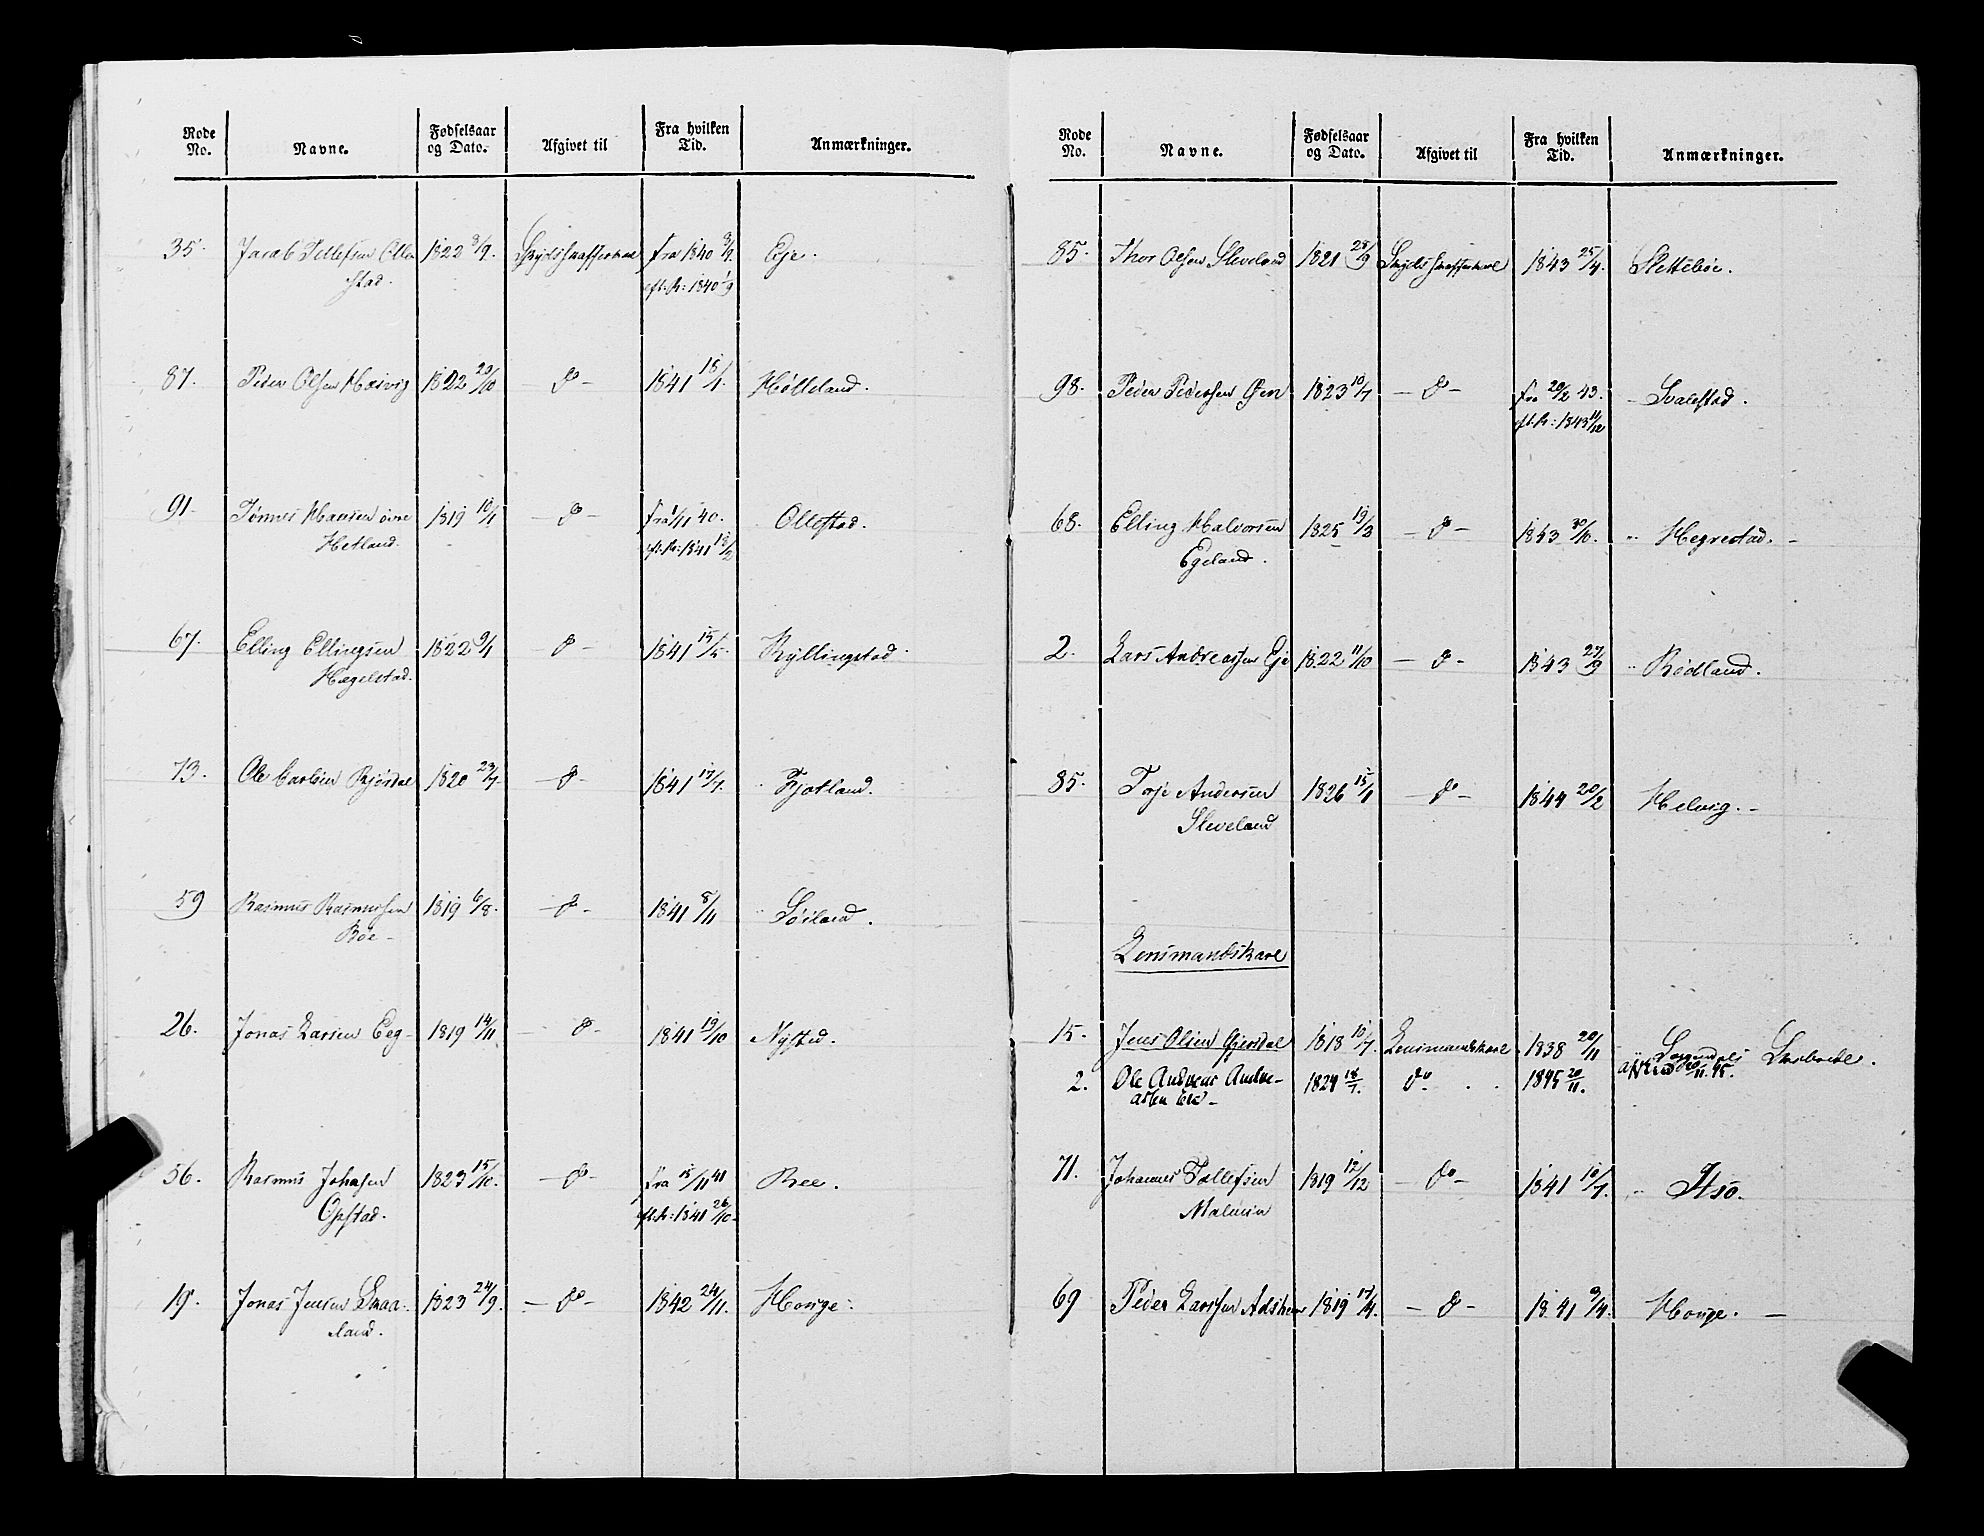 Rode No. Navne. Fødselsaar og Dato. Afgivet til Fra hvilken Tid. Anmærkninger.
35. Jacob Tellefsen Olle 1822 3/9. Skydsskafferkarl fra 1840 3/9. Eje.
stad. eft. K: 1840 1/9
87. Peder Olsen Hævig 1822 20/10 - do - 1841 18/1. Hølleland.
91. Tønnes Hansen øvre 1819 10/1 - do - fra 1/11 40. Ollestad.
Hetland. eft. K: 1841 18/2
67. Elling Ellingsen 1822 9/1 - do - 1841 15/5. Kyllingstad.
Hægelstad.
73. Ole Carlsen Bjørdal 1820 23/7. - do - 1841 17/7. Fjotland.
59 Rasmus Rasmussen 1819 6/8. - do - 1841 8/11 Søiland.
Böe -
26. Jonas Larsen Eeg - 1819 14/11 - do - 1841 19/10 Nysted.
56. Rasmus Johasen 1823 15/10. - do - fra 15/11 41 Ree.
Opstad. eft. K: 1841 26/10 -
19. Jonas Jensen Smaa- 1823 24/9. - do - 1842 24/11. Houge.
land.
Rode No. Navne. Fødselsaar og Dato. Afgivet til Fra hvilken Tid. Anmærkninger.
85. Thor Olsen Sleveland 1821 28/9 Skydsskafferkarl 1843 25/4. Slettebøe.
98. Peder Pedersen Øen 1823 10/7 - do - fra 20/2 43. Svalestad.
eft. K: 1843 11/12
68. Elling Halvorsen 1825 19/3 - do - 1843 30/10. " Hegrestad. -
Egeland.
2. Lars Andreassen Eje 1822 11/10 - do - 1843 27/9 " Rødland.
85. Tosje Andersen 1826 15/1 - do - 1844 20/2 Helvig. -
Sleveland
Lensmandskarl
15. Jens Olsen Gjersdal 1818 10/7. Lensmandskarl 1838 20/11 Soggendals
afskd 20/11 45.
2. Ole Andreas Andre- 1824 18/7. do. 1845 20/11.
asen Eie -
71. Johannes Tollefsen 1819 12/12 - do - 1841 10/7. " Itsø.
Malmin
69 Peder Larssen Adsheim 1819 17/4. - do - 1841 9/4. Houge. -